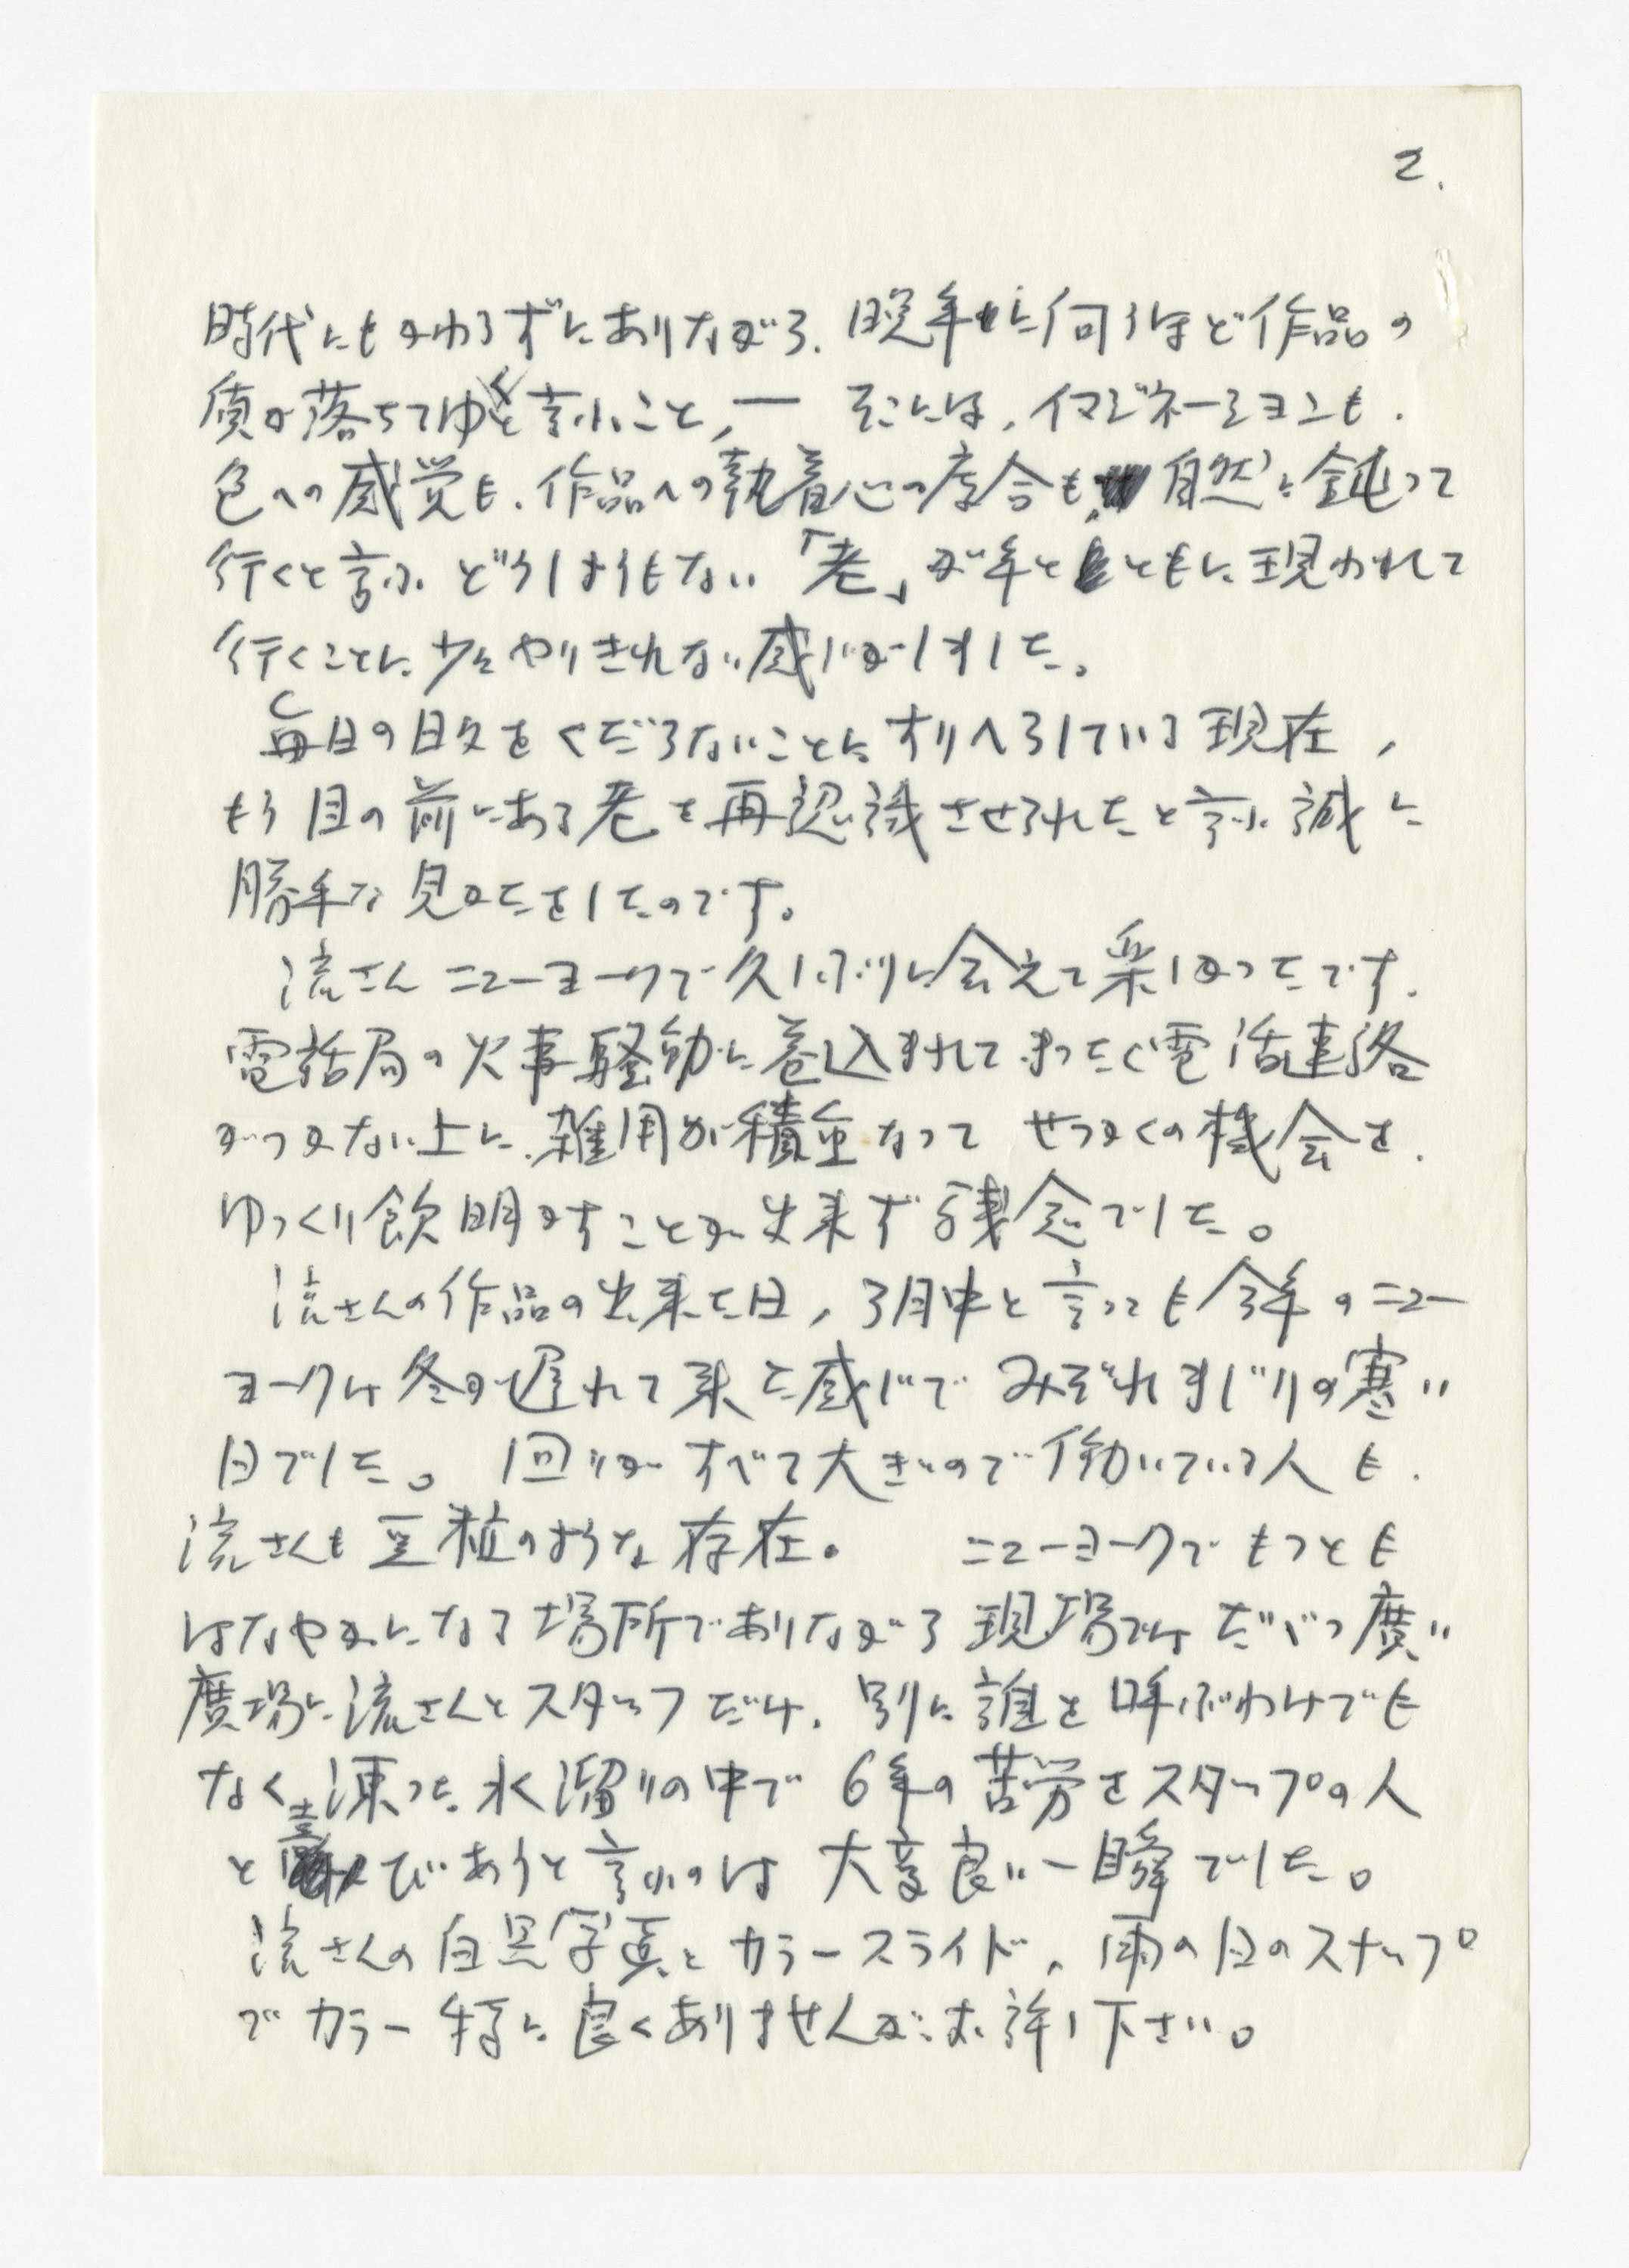 2.
時代にもかわらずにありながら、晩年に何うほど作品の
質が落ちてゆくと言ふこと、— そこには、イマジネーションも、
色への感覚も、作品への執着心の度合も、自然に鈍って
行くと言ふ どうしようもない「老」が年とともに現われて
行くことに少々やりきれない感じがしました。
毎日の日々をくだらないことにすりへらしている現在、
もう目の前にある老を再認識させられたと言ふ誠に
勝手な見かたをしたのです。
流さん ニューヨークで久しぶりに会えて楽しかったです。
電話局の火事騒動に巻込まれて まったく電話連絡
がつかない上に、雑用が積重なって せっかくの機会を、
ゆっくり飲明かすことが出来ず残念でした。
流さんの作品の出来た日、3月中と言っても今年のニュー
ヨークは冬が遅れて来た感じで みぞれまじりの寒い
日でした。 回りがすべて大きいので働いている人も、
流さんも豆粒のような存在。 ニューヨークでもっとも
はなやかになる場所でありながら現場ではだだっ廣い
廣場に流さんとスタッフだけ、別に誰を呼ぶわけでも
なく凍った水溜りの中で 6年の苦労をスタッフの人
と喜びあうと言ふのは 大変良い一瞬でした。
流さんの白黒写真とカラースライド、雨の日のスナップ
でカラー特に良くありませんがお許し下さい。